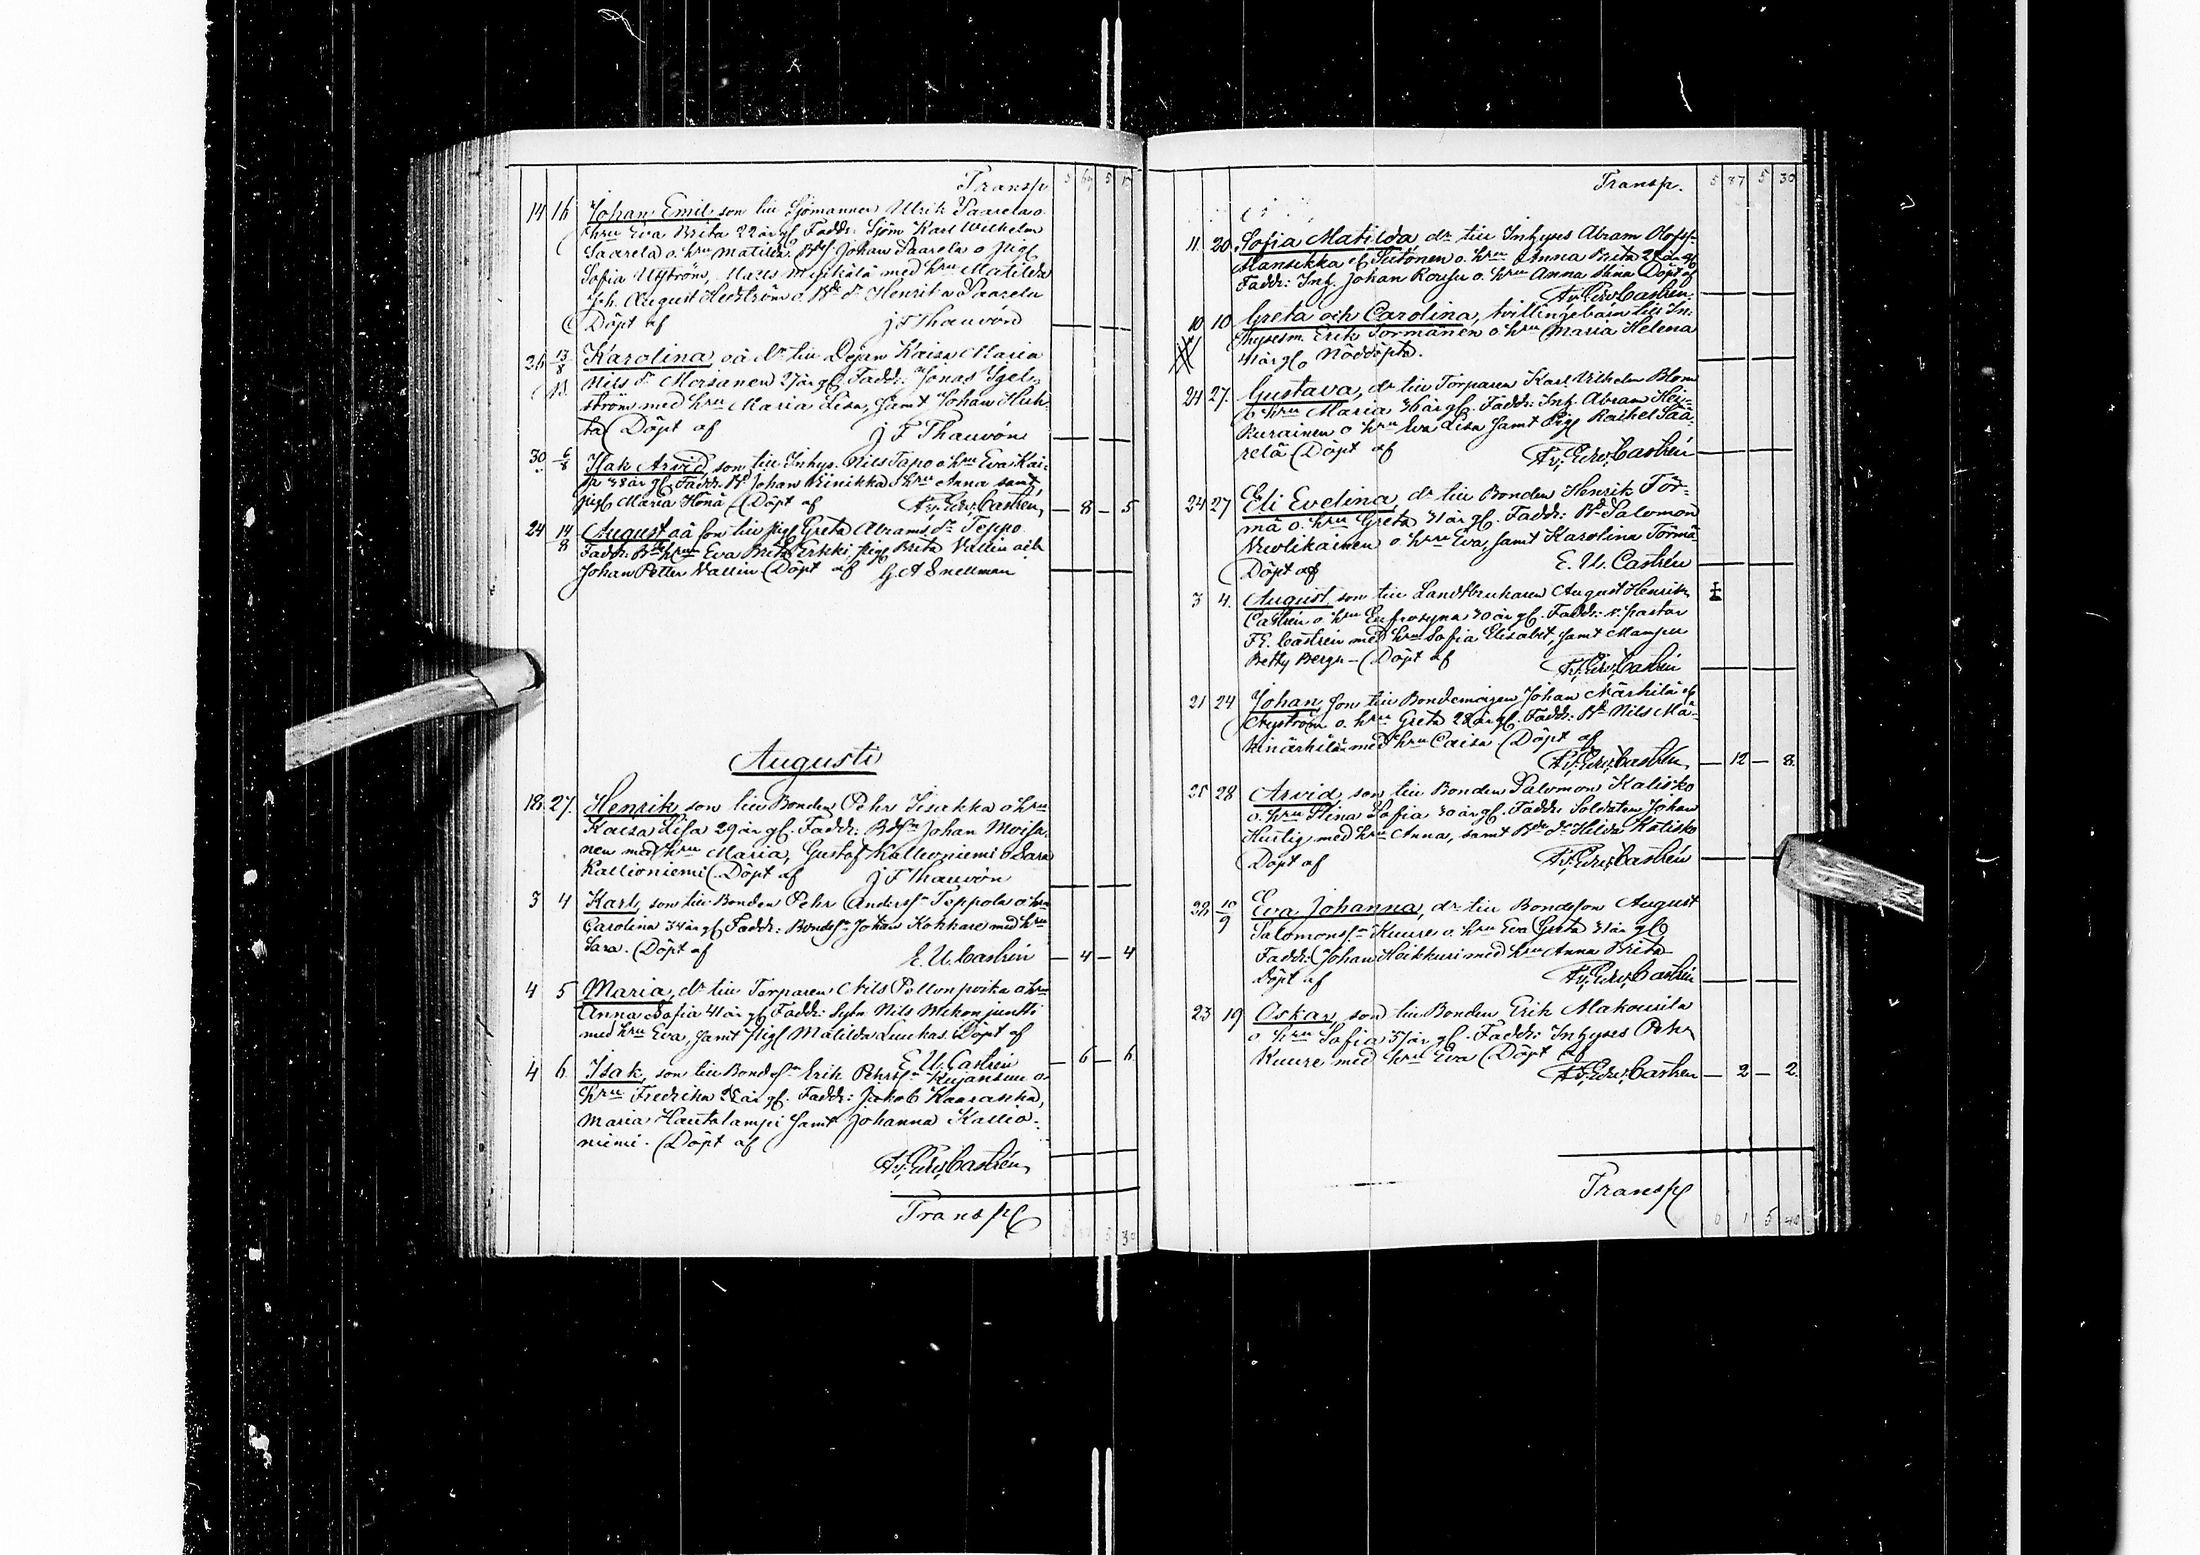 Transp. 5 5
14 16 Johan Emil, son till Sjömannen Ulrik Saarela o.
hru Eva Brita 22 år gl. Faddr: Sjöm Karl Wilhelm
Saarela o. hru Matilda, Bds. Johan Saarela o pig.
Sofia med hru Matilda
Joh. August Hedström o. Henrika Saarela
Döpt af J F Thauvón
26 13/8 Karolina, oä dr till Dejan Kaisa Maria
Nils dr Moisanen 27 år gl. Faddr: Jonas Ygel-
ström med hru Maria Lisa, samt Johan Huh-
ta (Döpt af J F Thauvón
30 6/8 Isak Arvid, son till Inhys. Nils Tapo o hru Eva Kai-
sa 38 år gl. Faddr: Bd Johan Kinikka o hru Anna samt
pig. Maria Honä (Döpt af Fr. Edv. Castrén — 8 — 5
24 14/8 August oä son till pig Greta Abramsdr Teppo
Faddr: Eva Brita Perkki, pig Brita Vallin och
Johan Petter Vallin (Döpt af G. A Snellman
Augusti
18. 27. Henrik, son till Bonden Pehr Iisakka o hru
Kaisa Lisa 29 år gl. Faddr: Bdsn Johan Moisa-
nen med hru Maria, Gustaf Kallioniemi o Sara
Kallioniemi (Döpt af J F Thauvón
3 4 Karl, son till Bonden Pehr Andersn Teppola o hru
Carolina 34 år gl Faddr: Bondesn Johan Kokkare med hru
Sara. (Döpt af E. U. Castrén — 4 — 4
4 5 Maria, dr till Torparen Nils Pellonpoika o hru
Anna Sofia 41 år gl Faddr: Nils
med hru Eva, samt pig Matilda Luukas. Döpt af
E U. Castrén — 6 — 6
4 6 Isak, son till Bondesn Erik Pehrsn Kujansuu o.
hru Fredrika 28 år gl. Faddr: Jakob Kaaranka,
Maria Hautalampi samt Johanna Kallio-
niemi. (Döpt af
Fr. Edv. Castrén
Transp
Transp. 5 87 5 30
11. 20. Sofia Matilda dr till Inhyses Abram Olofs-
Mansikka o. hru Anna Brita
Faddr: Inh. Johan o. hru Anna Stina Döpt af
Fr. Edv. Castrén
10 10 Greta och Carolina, tvillingebarn till In-
hysesm. Erik Tormänen o hru Maria Helena
41 år gl. Nöddöpta.
24 27. Gustava, dr till Torparen Karl Vilhelm Blom
o hru Maria 36 år gl. Faddr: Inh. Abram Keu-
kurainen o hru Eva Lisa samt Pig Rachel Saa-
relä (Döpt af Fr. Edv. Castrén
24 27 Eli Evelina, dr till Bonden Henrik Tör-
mä o. hru Greta 31 år gl. Faddr: Bd Salomon
Nuolikainen o hru Eva, samt Karolina Törmä
Döpt af E. U. Castrén
3 4. August, son till Landtbrukaren August Henrik
Castrén o hru Eufrosyna 30 år gl. Faddr: v. pastor
F. E. Castrén med hru Sofia Elisabet, samt Mamsell
Betty Bergh — (Döpt af Fr. Edv. Castrén
21 24 Johan, son till Bondemågen Johan Märkilä el.
Nyström o. hru Greta 28 år gl. Faddr: Bd Nils Mä-
med hru Caisa (Döpt af
Fr. Edv. Castrén — 12 — 8.
25 28 Arvid son till Bonden Salomon Kalisko
o. hru Stina Sofia 30 år gl. Faddr: Soldaten Johan
Hurtig med hru Anna, samt Bde dr Hilda Katisko
Döpt af Fr. Edv. Castrén
22 10/9 Eva Johanna, dr till Bondeson August
Salomonsn Kuure o. hru Eva Greta 31 år gl.
Faddr: Johan Heikkuri med hru Anna Brita
Döpt af Fr. Edv. Castrén
23 19 Oskar, son till Bonden Erik Makonila
o hru Sofia 37 år gl. Faddr: Inhyses Pehr
Kuure med hru Eva (Döpt af
Fr. Edv. Castrén — 2 — 2.
Transp